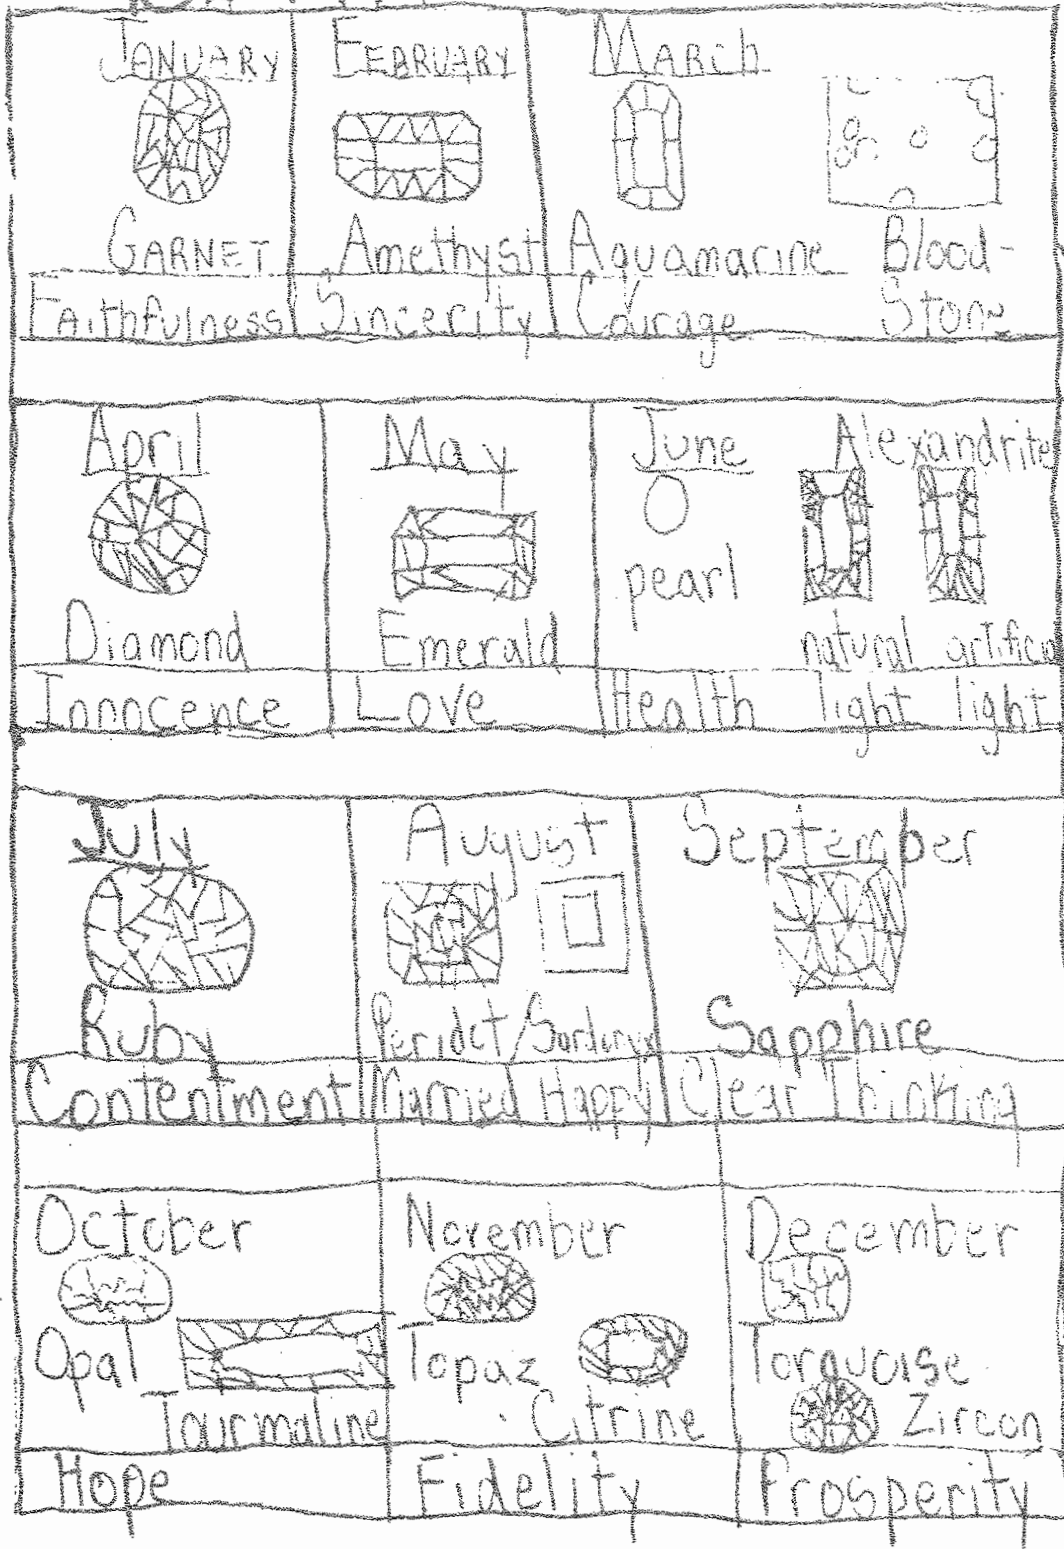 JANUARY FEBRUARY MARCh
GARNET Amethyst Aquamarine Blood-
FAithfulness Sincerity Courage Stone
April May June Alexandrite
pearl
Diamond Emerald natural artifical
Innocence Love Health light light
July August September
Ruby Peridot/Sardonyx Sapphire
Contentment Married Happy Clear Thinking
October November December
Opal Topaz Torquoise
Tourmaline Citrine Zircon
Hope Fidelity Prosperity